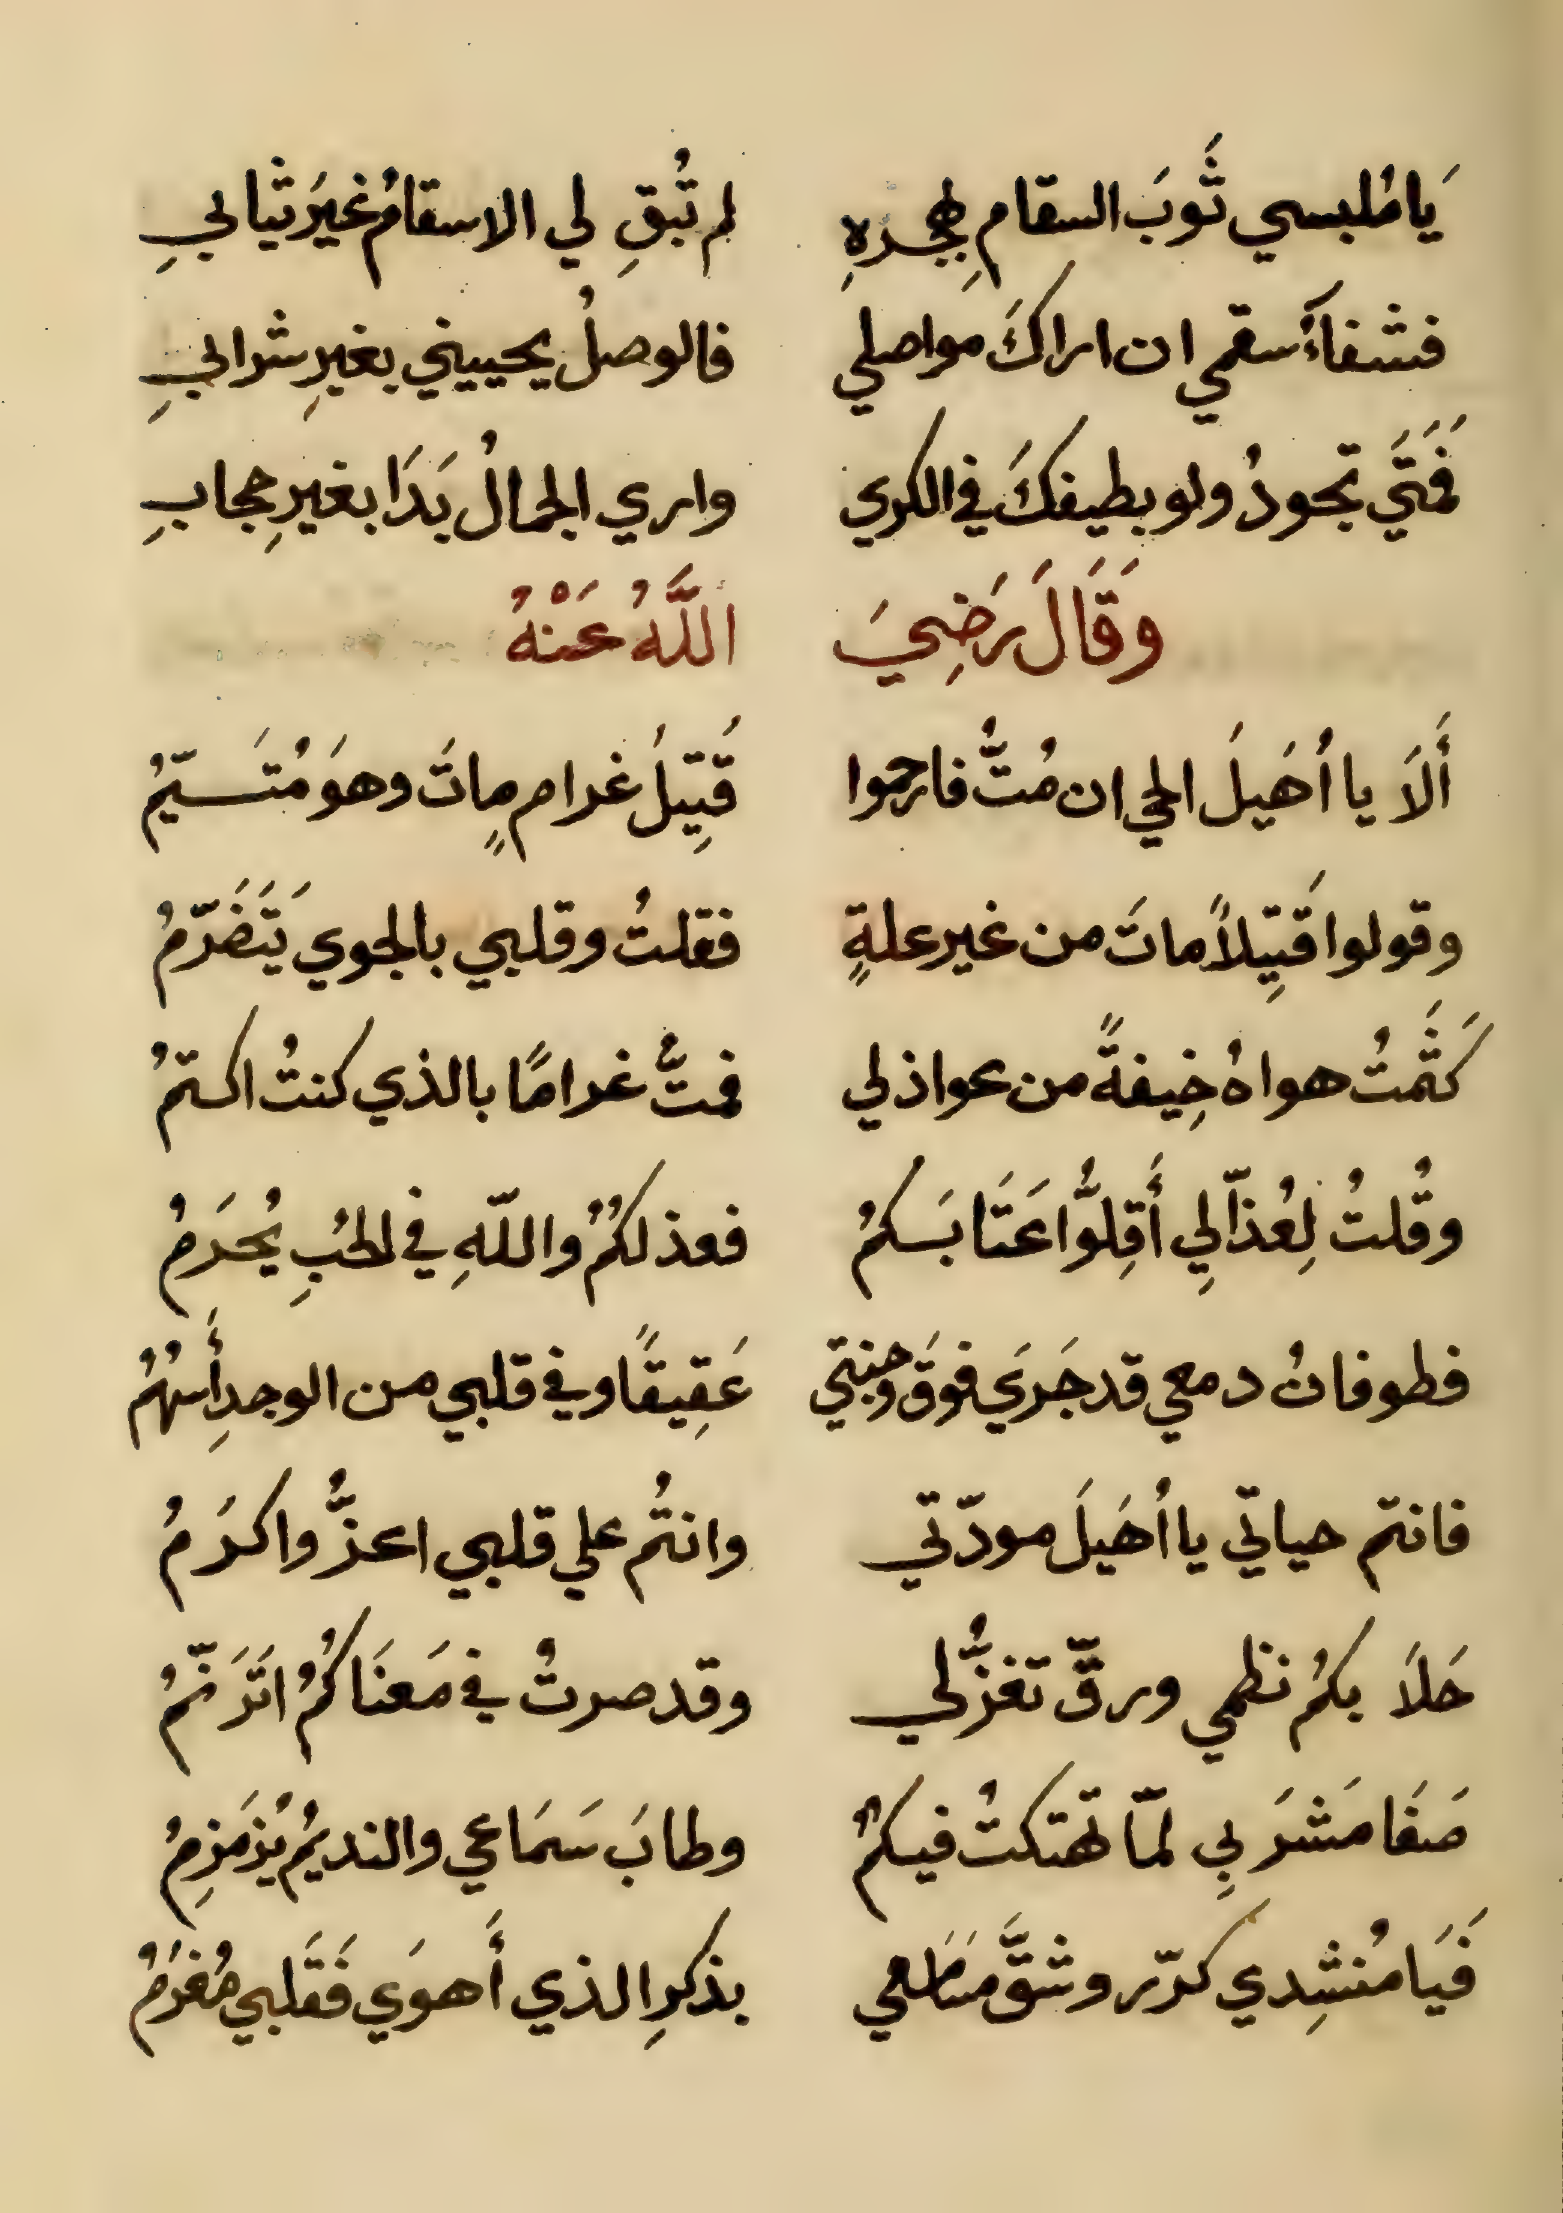 يَا مُلبسي ثَوبَ السقام بِهجرهِ لم تُبقِ لي الاسقامُ غيرَ ثيابيِ
فشفاءُ سقمي ان اراكَ مواصلي فالوصلُ يحييني بغيرِ شرابيِ
فَمَتَي تجودُ ولو بطيفكَ في الكري واري الجمالُ بَدَا بغيرِ حِجابِ
وَقَالَ رَضِيَ اللَّهُ عَنْهُ
أَلاَ يا أُهَيلَ الحي ان مُتُّ فارحموا قَتِيلَ غرامٍ ماتَ وهوَ مُتَيّمُ
وقولوا قَتِيلاً ماتَ من غير علةٍ فقلتُ وقلبي بالجوي يَتَضَرّمُ
كَتَمتُ هواهُ خِيفةً من عواذلي فمتُّ غرامًا بالذي كنتُ اكتمُ
وقُلتُ لِعُذّالِي أَقِلُّوا عَتَابَكمُ فعذلكُمُ واللّهِ في الحُبِ يُحَرمُ
فطوفانُ دمعي قد جَرَي فوقَ وَجنتي عَقِيقًا وفي قلبي من الوجدِ أَسهُمُ
فانتم حياتي يا أُهَيلَ مودّتي وانتُم علي قلبي اعزُّ واكرَمُ
حَلاَ بكمُ نظمي ورقّ تغزُّلي وقد صرتُ في مَعنَاكُمُ اتَرَنّمُ
صَفَا مَشرَبِي لمّا تهتكتُ فيكمُ وطابَ سَمَاعي والنديمُ يُزَمزِمُ
فَيَا مُنشِدي كرّر وشَنِّف مَسَامعي بذكرِ الذي أَهوَي فَقَلبي مُغرَمُ